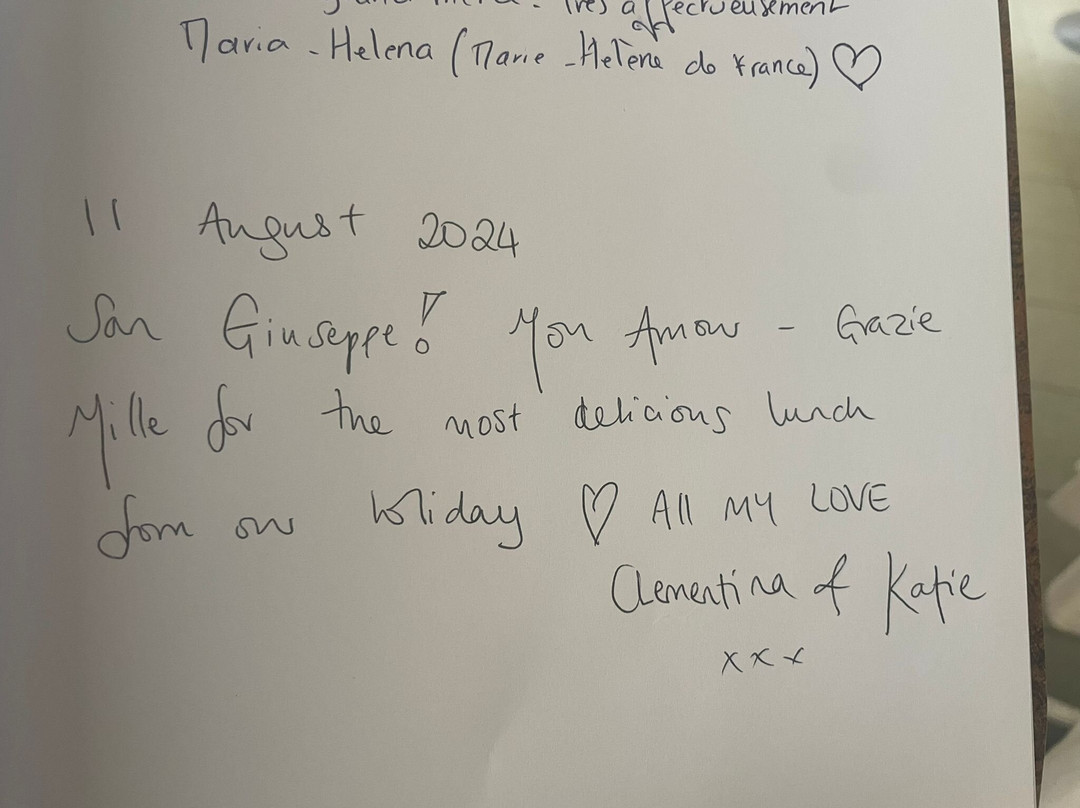 Très affectueusement
Maria - Helena (Marie - Helène de France) ♡
11 August 2024
San Giuseppe! Mon Amour - Grazie
Mille for the most delicious lunch
from our holiday ♡ All MY LOVE
Clementina & Katie
x x x